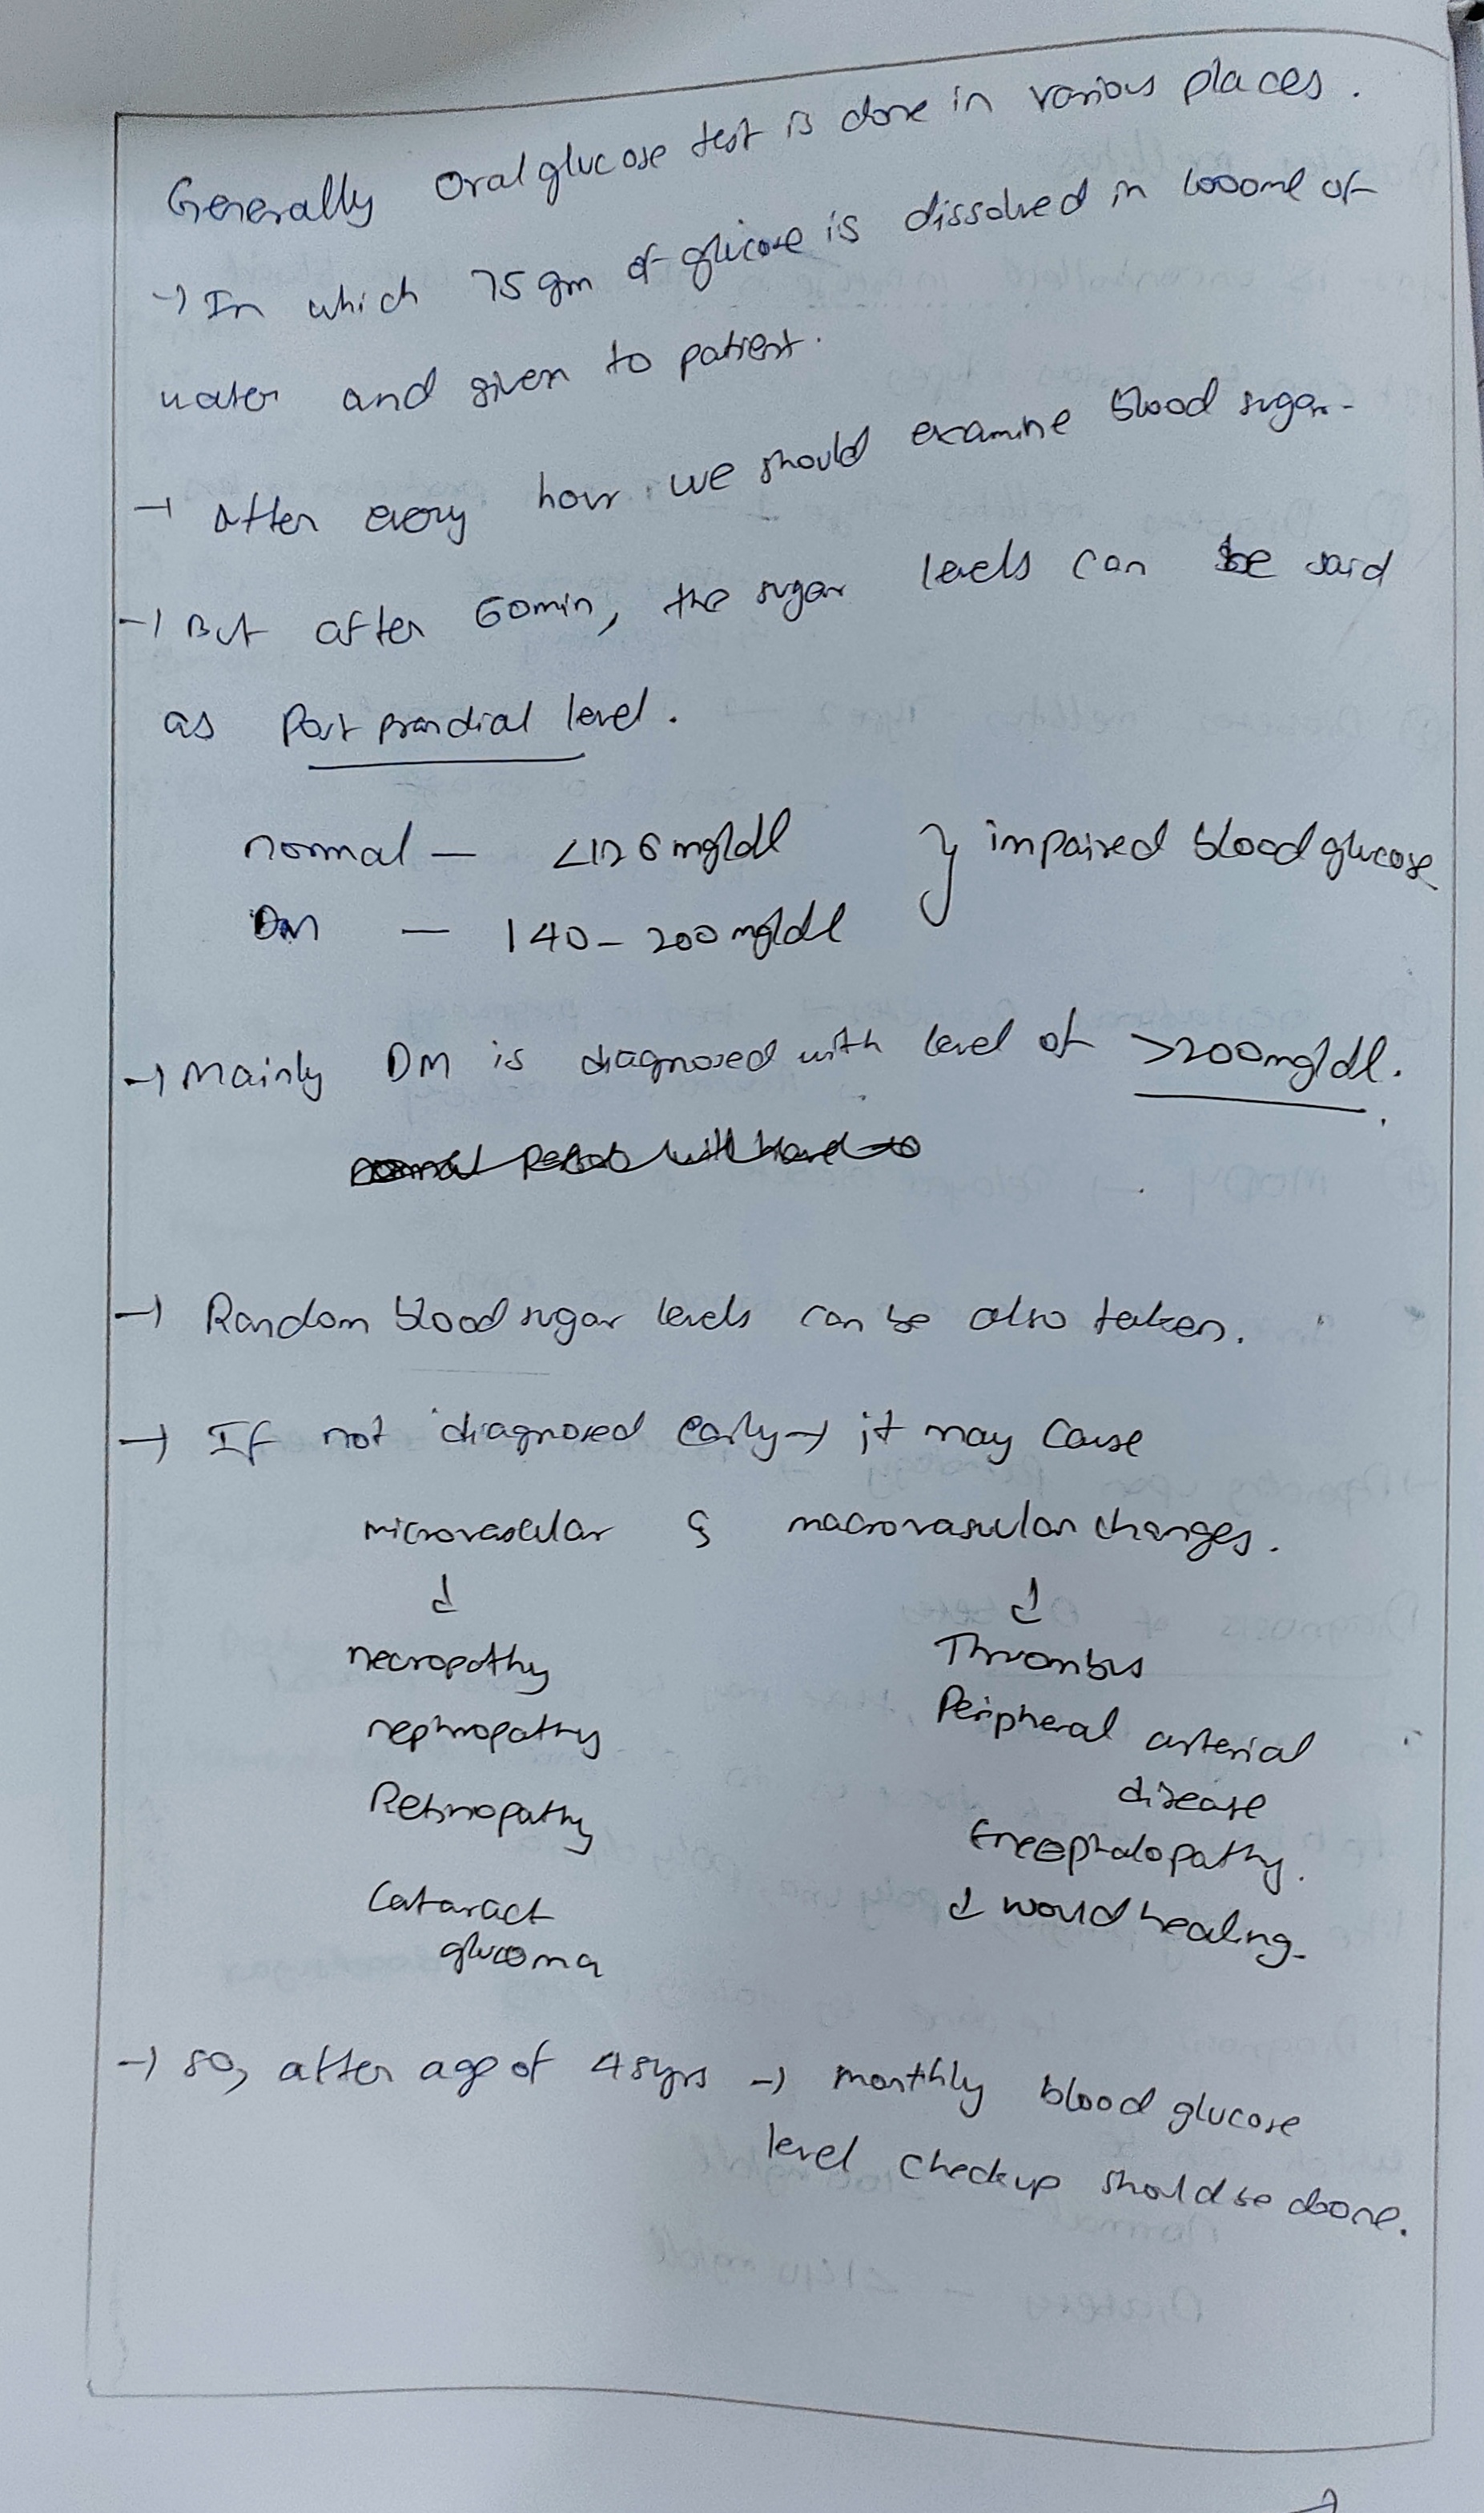 Generally Oral glucose test is done in various places.
→ In which 75 gm of glucose is dissolved in 1000ml of
water and given to patient.
→ After every hour we should examine blood sugar.
→ But after 60min, the sugar levels can be said
as Post prandial level.
normal — <126 mg/dl } impaired blood glucose
DM — 140 - 200 mg/dl
→ Mainly DM is diagnosed with level of >200mg/dl.
→ Random blood sugar levels can be also taken.
→ If not diagnosed early → it may cause
microvascular & macrovascular changes.
↓ ↓
necropathy Thrombus
nephropathy Peripheral arterial
disease
Retinopathy Encephalopathy.
Cataract ↓ would healing.
glucoma
→ so, after age of 45yrs → monthly blood glucose
level checkup should be done.